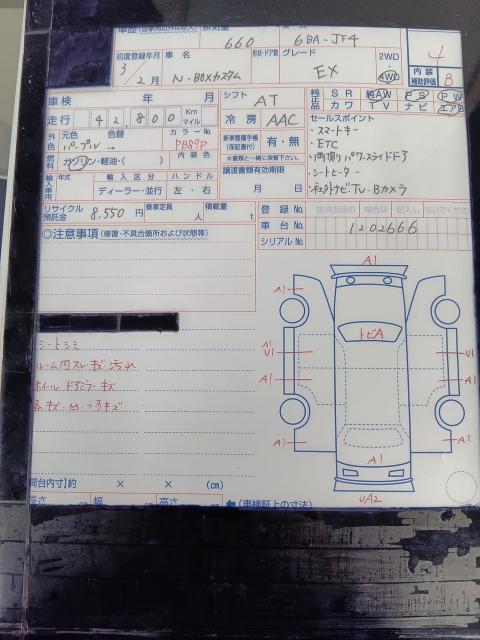 車歴 排気量 型式
660 6BA-JF4
初度登録年月 車名 形状・ドア数 グレード 2WD
3/2月 N-BOXカスタム EX 4WD
4
内装
補助評価 B
車検 年 月 シフト AT
純正品 SR 純AW PS PW
カワ TV ナビ エアB
走行 42,800 Km マイル 冷房 AAC
外色 元色 色替 カラーNo. 新車整備手帳(保証書付) 有・無
パープル 色 PB89P
※書類と一緒に保管下さい。
内装色
燃料 ガソリン・軽油・( ) 譲渡書類有効期限
月 日
輸入車用 年式 輸入区分 ハンドル
ディーラー・並行 左・右
セールスポイント
・スマートキー
・ETC
・両側パワースライドドア
・シートヒーター
・社外ナビTV・Bカメラ
リサイクル預託金 8,550円 乗車定員 人 積載量 t
登録No.
車台No. 1202666
シリアルNo.
◎注意事項(修復・不具合箇所および状態等)
シートシミ
ルーム内スレキズ汚れ
ホイール ドアミラーキズ
A1
A1
A1
U1
トビA
U1
A1
A1
A1
A1
A1
UA2
荷台内寸)約 × × (cm)
長さ 幅 高さ ←(車検証上の寸法)